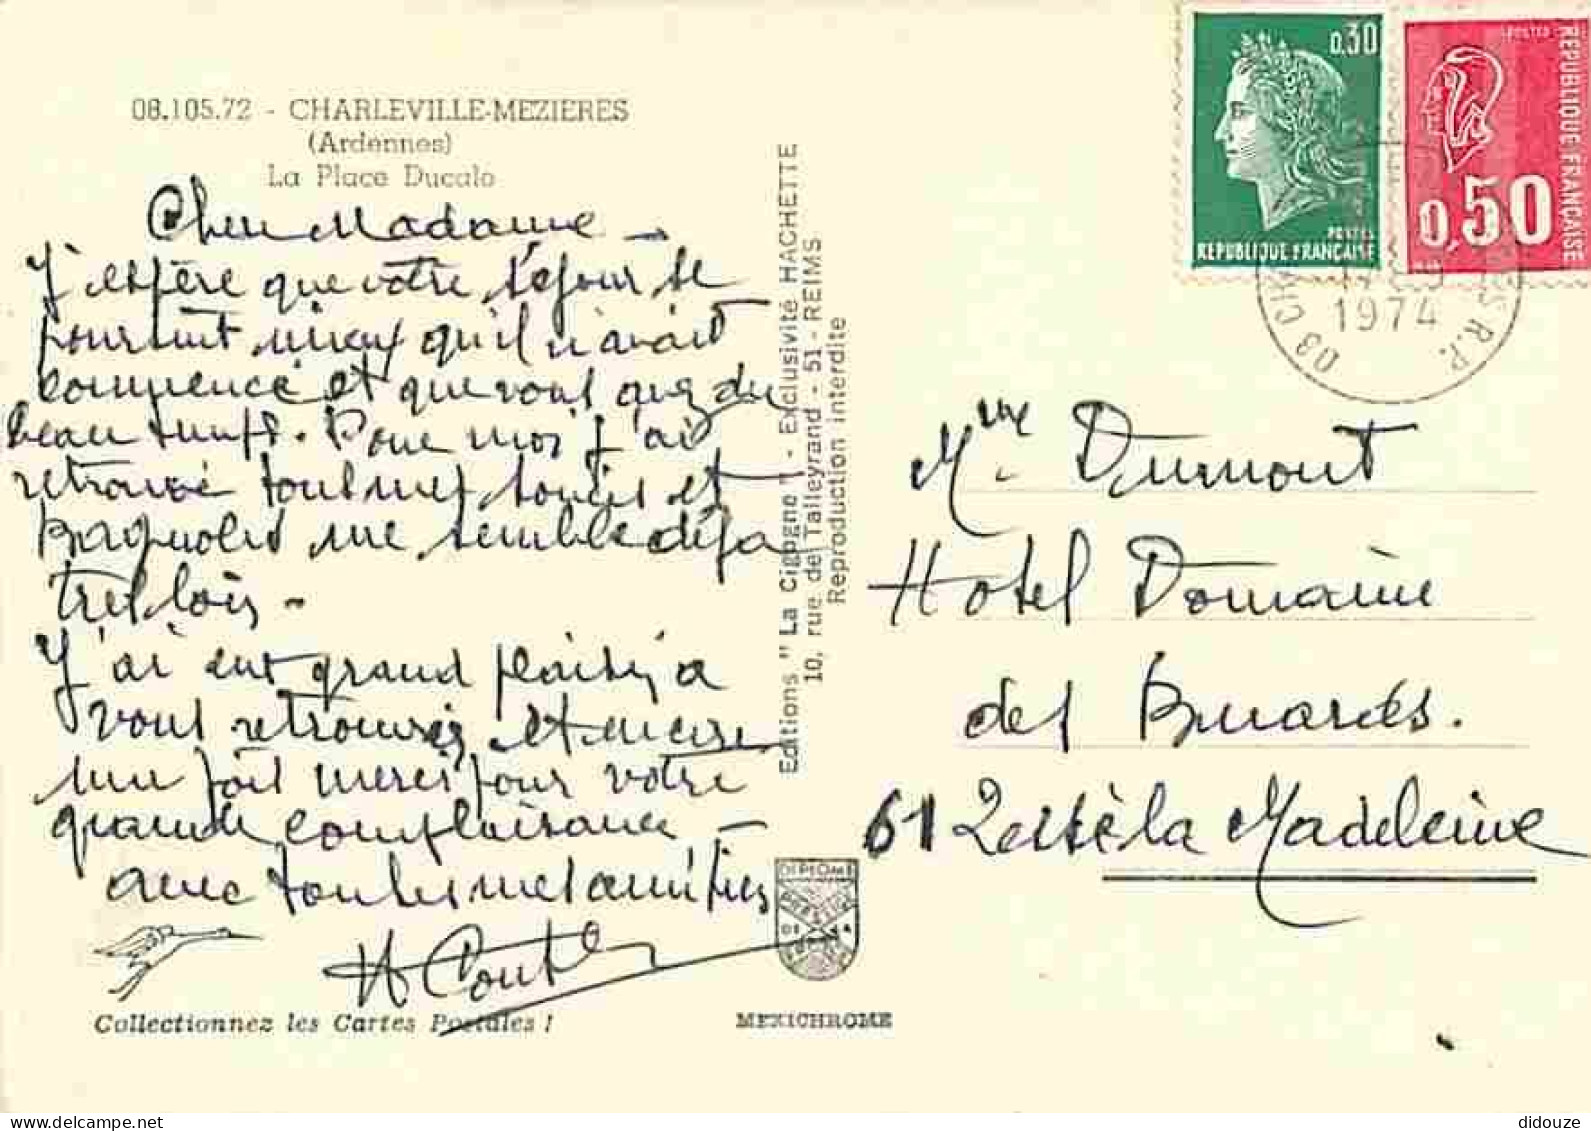 08.105.72 - CHARLEVILLE-MEZIERES
(Ardennes)
La Place Ducale
Chere Madame -
J'espère que votre séjour se
poursuit mieux qu'il n'avait
commencé et que vous avez du
beau temps. Pour moi j'ai
retrouvé tous mes soucis et
Bagnoles me semble déja
tres loin -
J'ai eut grand plaisir a
vous retrouver et encore
une fois merci pour votre
grande complaisance -
avec toutes mes amitiés
Collectionnez les Cartes Postales !
Editions "La Cigogne" - Exclusivité HACHETTE
10, rue de Talleyrand - 51 - REIMS
Reproduction interdite
DIPLOME
PRESTIGE
MEXICHROME
0,30
POSTES
REPUBLIQUE FRANÇAISE
POSTES
REPUBLIQUE FRANÇAISE
0,50
1974
R.P.
Mme Dumont
Hotel Domaine
des
61 Tessé la Madeleine
delcampe.net
didouze